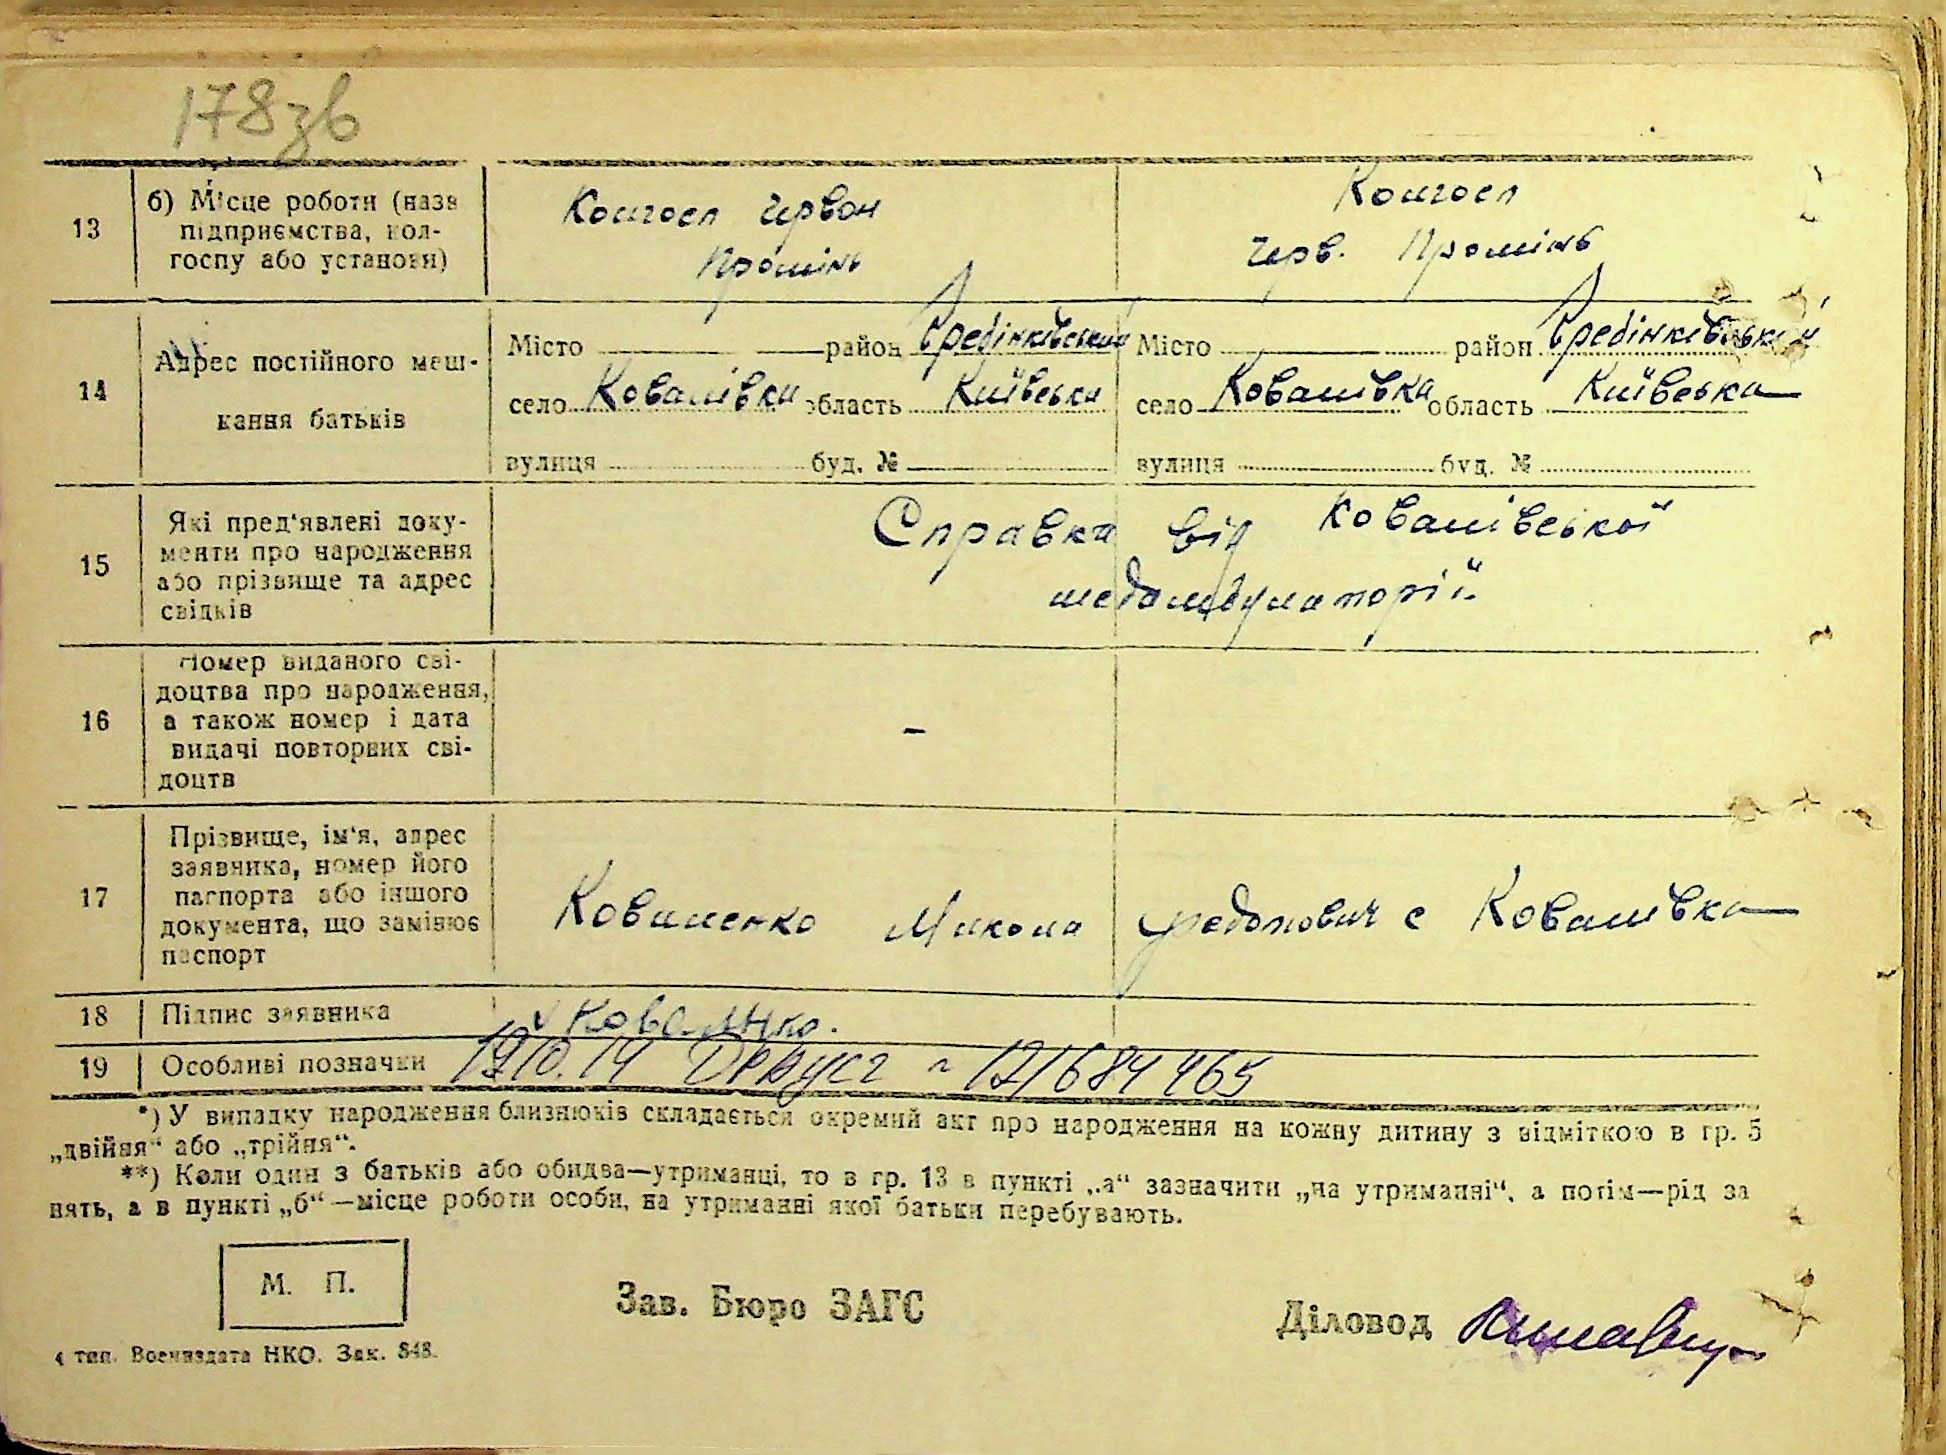 178зв
13
б) Місце роботи (назв
підприємства, кол-
госпу або установи)
Колгосп Червон
Промінь
Колгосп
Черв. Промінь
14
Адрес постійного меш-
кання батьків
Місто район Гребінківський
село Ковалівка область Київська
вулиця буд. №
Місто район Гребінківський
село Ковалівка область Київська
вулиця буд. №
15
Які пред‘явлені доку-
менти про народження
або прізвище та адрес
свідків
Справка від Ковалівської
медамбулаторії
16
Номер виданого сві-
доцтва про народження,
а також номер і дата
видачі повторних сві-
доцтв
-
17
Прізвище, ім‘я, адрес
заявника, номер його
паспорта або іншого
документа, що замінює
паспорт
Коваленко Микола Федотович с Ковалівка
18 Підпис заявника
Коваленко.
19 Особливі позначки
*) У випадку народження близнюків складається окремий акт про народження на кожну дитину з відміткою в гр. 5
„двійня“ або „трійня“.
**) Коли один з батьків або обидва—утриманці, то в гр. 13 в пункті „а“ зазначити „на утриманні“, а потім—рід за
нять, а в пункті „б“—місце роботи особи, на утриманні якої батьки перебувають.
М. П.
Зав. Бюро ЗАГС
Діловод
4 тип. Воениздата НКО. Зак. 848.